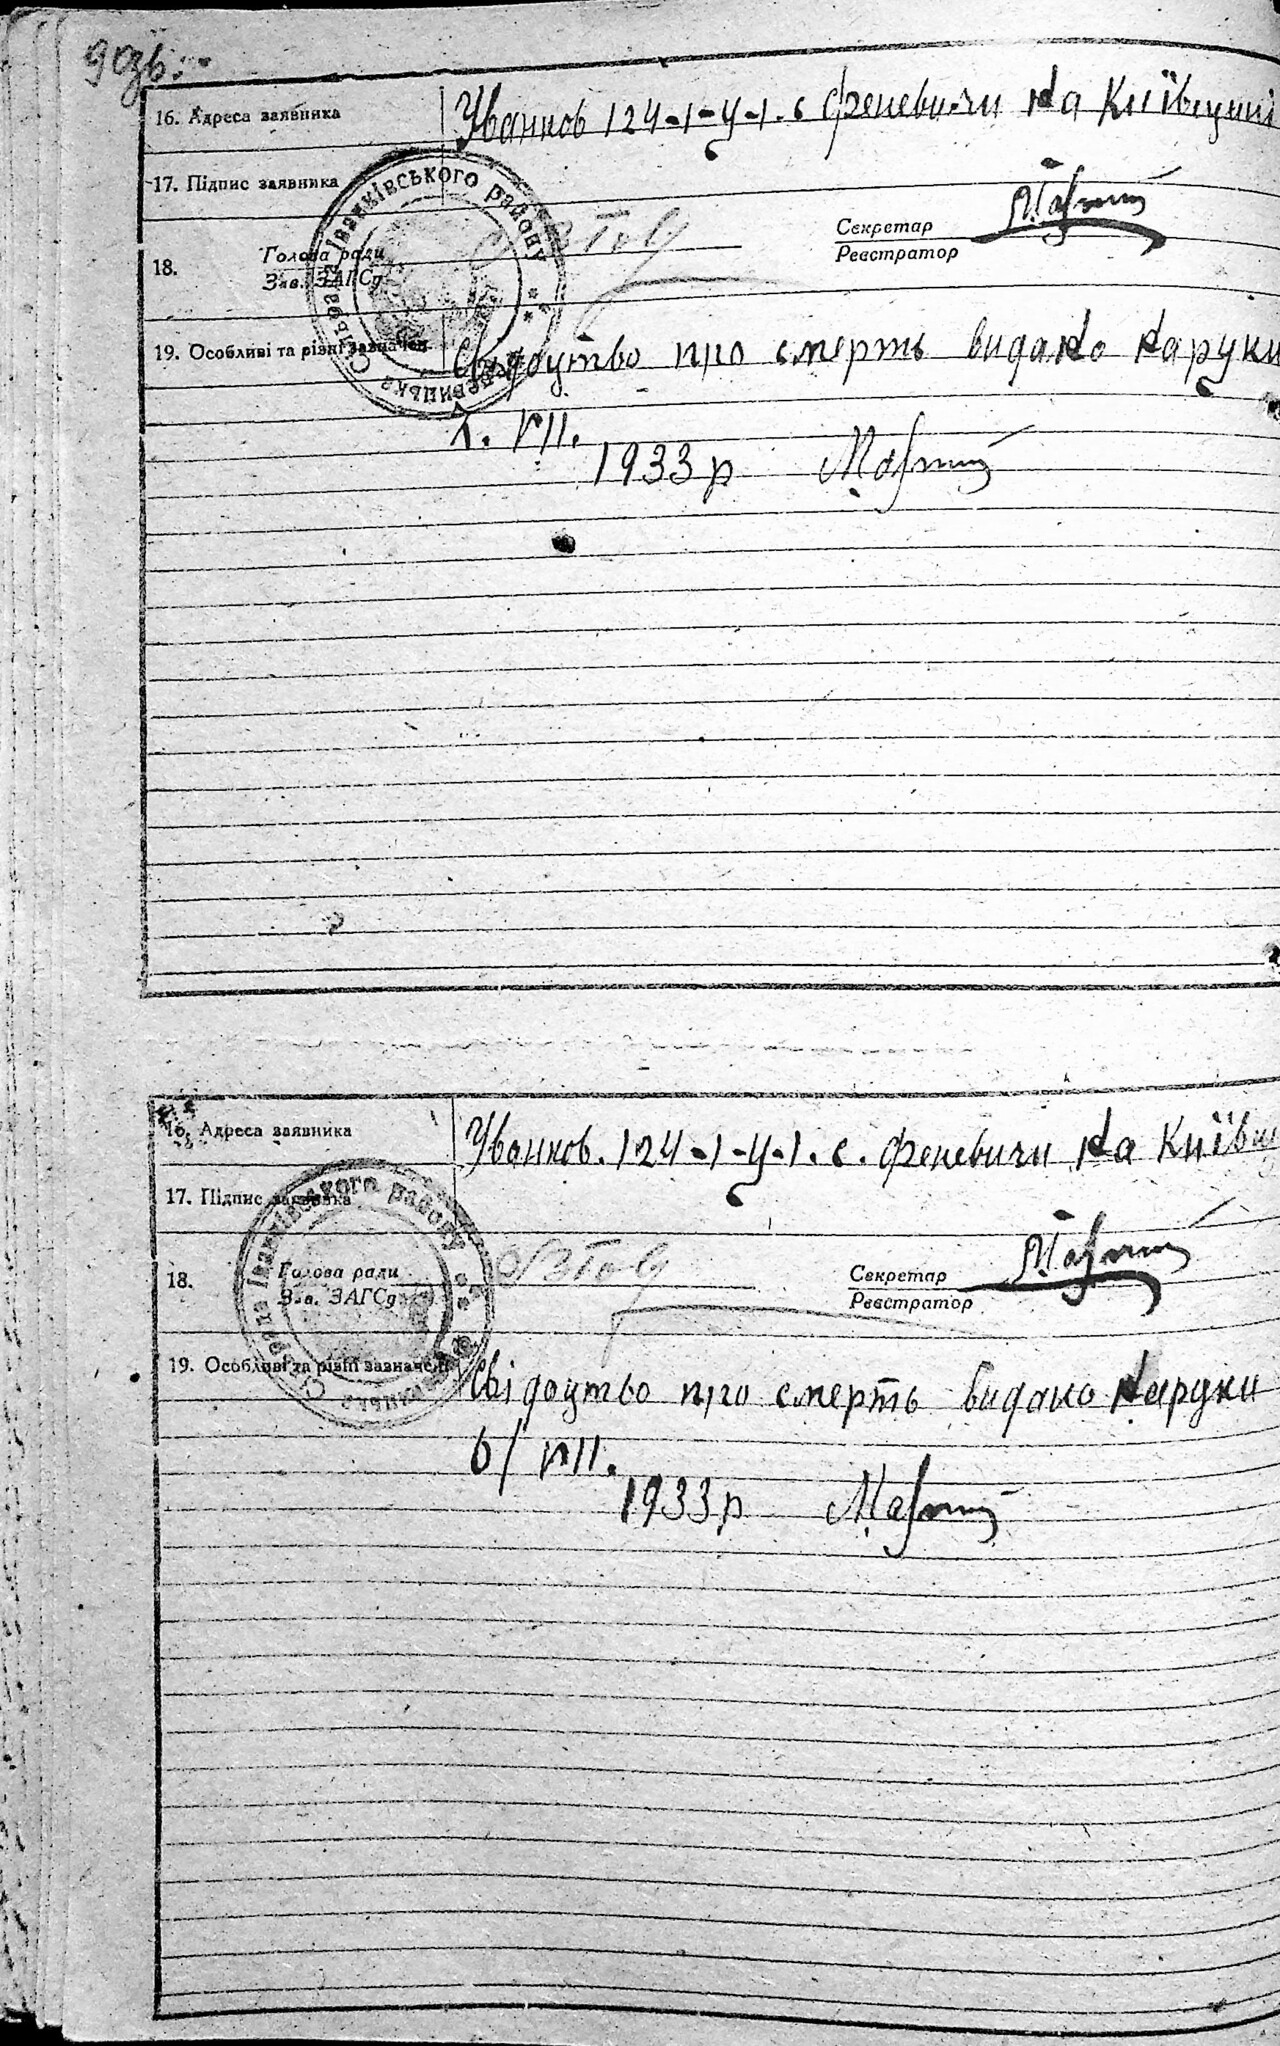 90зв.
16. Адреса заявника Уванков 124-1-У-1. с. Феневичи на Київщині
17. Підпис заявника
Сільрада Іванківського району
18. Голова ради
Зав. ЗАГСу
Секретар
Реєстратор
19. Особливі та різні зазначен. Свідоутво про смерть видано на руки
1. VII.
1933 р
16. Адреса заявника Уванков. 124-1-У-1. с. Феневичи на Київщ
17. Підпис заявника
Іванківського району
18. Голова ради
Зав. ЗАГСу
Секретар
Реєстратор
19. Особливі та різні зазначен. Свідоутво про смерть видано на руки
6/VII.
1933 р